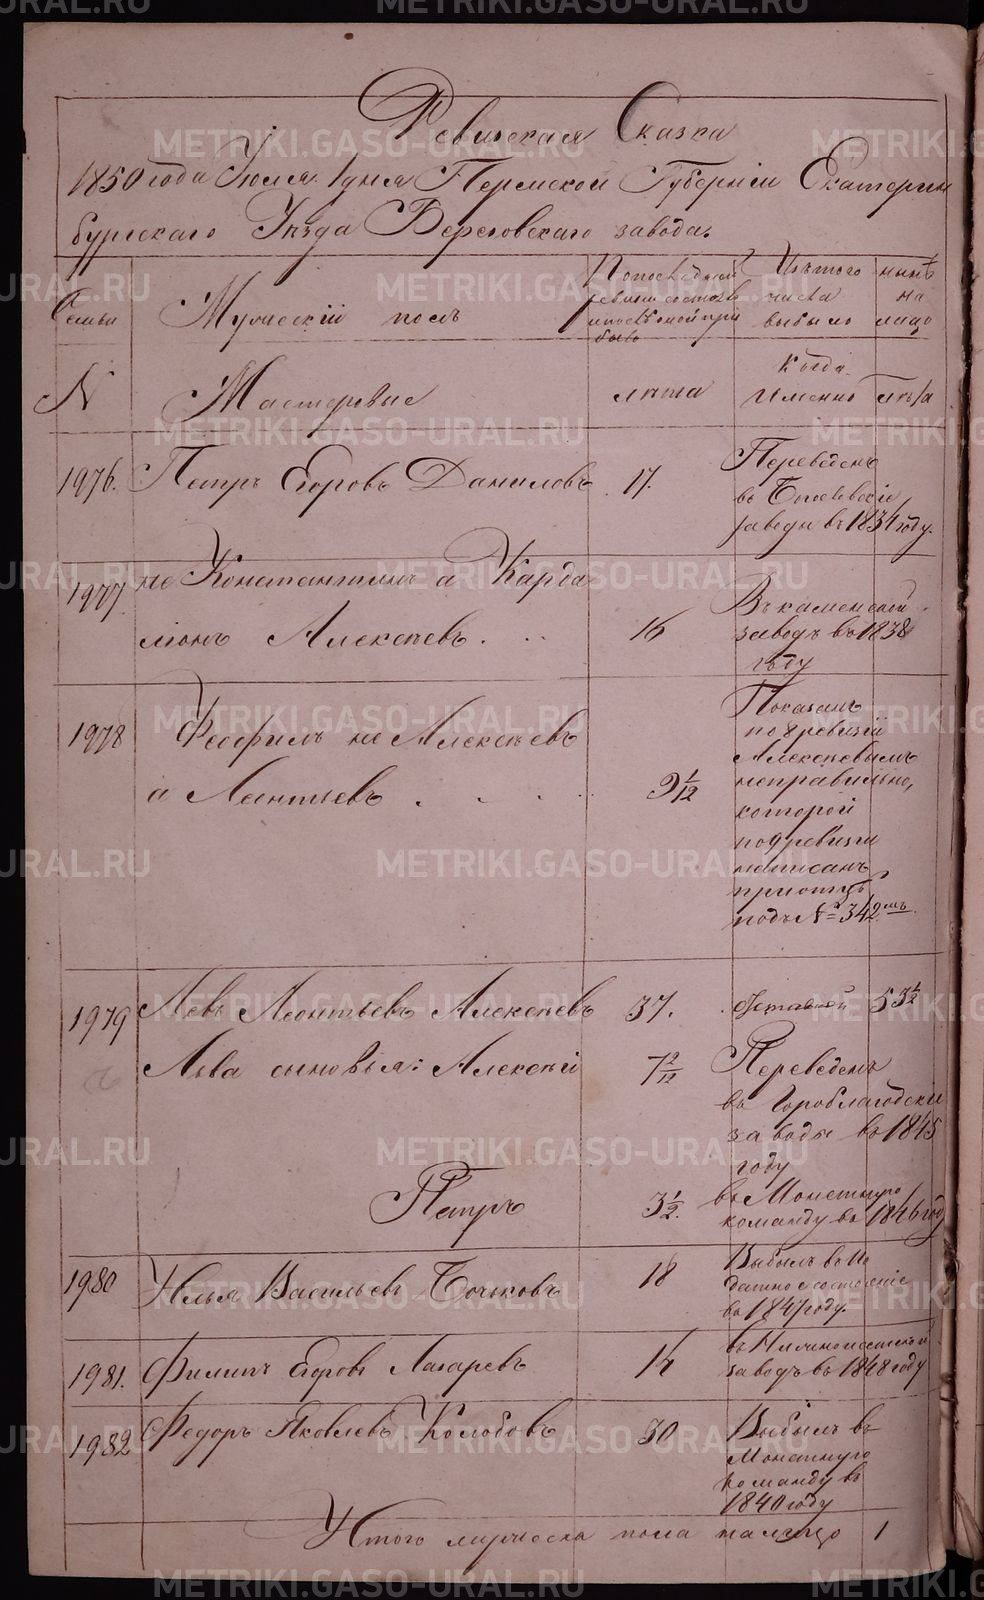 Ревизская Сказка
1850 года Июля 1 дня Пермской Губернiи Екатерин
бургскаго Уѣзда Березовскаго завода.
Семьи
Мужескiй полъ
По последней
ревизiи состояло
и после оной при
было
Изъ того
числа
выбыло
нынѣ
на
лицо
N
Мастеровые
лѣта
Когда
Именно
лѣта
1976. Петръ Егоровъ Даниловъ 17.
Переведенъ
въ
заводы въ 1834 году.
1977 не Константинъ а Харда
монъ Алексѣевъ. 16
Въ каменской
заводъ въ 1838
году
1978 Феофилъ не Алексѣевъ
а Леонтьевъ . . . . 9 1/12
Показанъ
по 8 ревизiи
Алексѣевымъ
неправильно,
которой
по ревизiи
написанъ
при отцѣ
подъ № 342мъ.
1979 Левъ Леонтьевъ Алексѣевъ 37. Отставной 53 1/2
Льва сыновья: Алексѣй 7 2/12
Переведенъ
въ Гороблагодатски
заводы въ 1845
году
Петръ 3 1/2.
въ Монетную
команду въ 1846 год
1980 Илья Васильевъ Бочковъ 18
Выбылъ въ по
датное состоянiе
въ 1847 году.
1981. Филипъ Егоровъ Лагаревъ 14
въ
заводъ въ 1848 году
1982 Федоръ Яковлевъ Колобовъ 30
Выбылъ въ
Монетную
команду въ
1840 году
Итого мужеска пола на лицо 1
METRIKI.GASO-URAL.RU